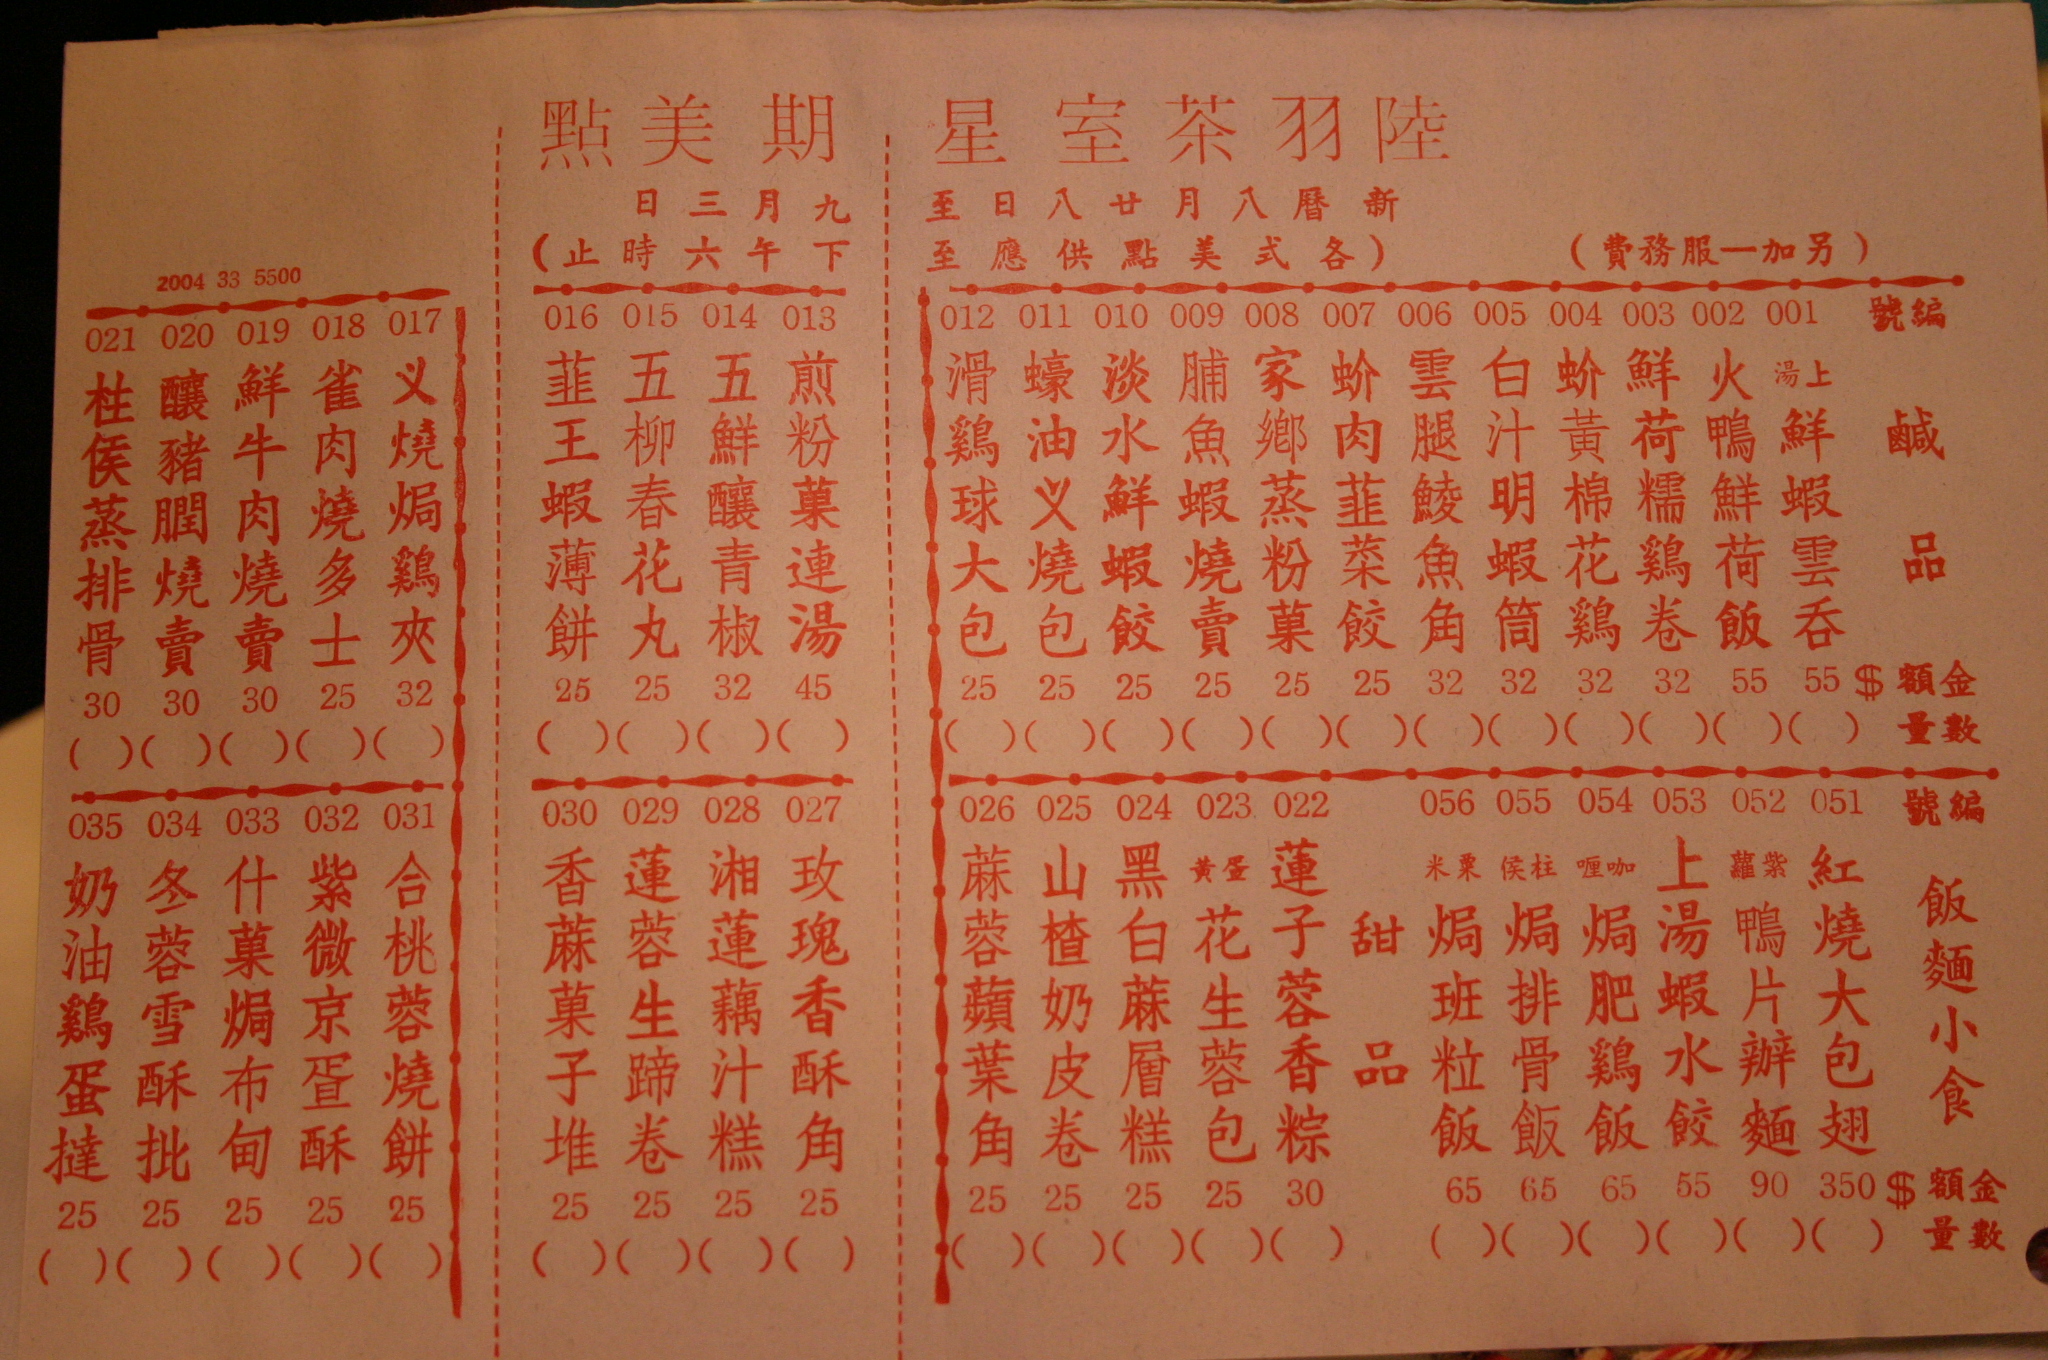 陸羽茶室星期美點
新曆八月廿八日至九月三日
(各式美點供應至下午六時止)
(另加一服務費)
2004 33 5500
編號
鹹品
金額$
數量
001 上湯鮮蝦雲吞 55 ( )
002 火鴨鮮荷飯 55 ( )
003 鮮荷糯鷄卷 32 ( )
004 蚧黃棉花鷄 32 ( )
005 白汁明蝦筒 32 ( )
006 雲腿鯪魚角 32 ( )
007 蚧肉韮菜餃 25 ( )
008 家鄉蒸粉菓 25 ( )
009 脯魚蝦燒賣 25 ( )
010 淡水鮮蝦餃 25 ( )
011 蠔油义燒包 25 ( )
012 滑鷄球大包 25 ( )
013 煎粉菓連湯 45 ( )
014 五鮮釀青椒 32 ( )
015 五柳春花丸 25 ( )
016 韮王蝦薄餅 25 ( )
017 义燒焗鷄夾 32 ( )
018 雀肉燒多士 25 ( )
019 鮮牛肉燒賣 30 ( )
020 釀豬膶燒賣 30 ( )
021 柱侯蒸排骨 30 ( )
編號
飯麵小食
金額$
數量
051 紅燒大包翅 350 ( )
052 紫蘿鴨片辦麵 90 ( )
053 上湯蝦水餃 55 ( )
054 咖喱焗肥鷄飯 65 ( )
055 柱侯焗排骨飯 65 ( )
056 粟米焗班粒飯 65 ( )
甜品
022 蓮子蓉香粽 30 ( )
023 蛋黃花生蓉包 25 ( )
024 黑白蔴層糕 25 ( )
025 山楂奶皮卷 25 ( )
026 蔴蓉蘋葉角 25 ( )
027 玫瑰香酥角 25 ( )
028 湘蓮藕汁糕 25 ( )
029 蓮蓉生蹄卷 25 ( )
030 香蔴菓子堆 25 ( )
031 合桃蓉燒餅 25 ( )
032 紫微京疍酥 25 ( )
033 什菓焗布甸 25 ( )
034 冬蓉雪酥批 25 ( )
035 奶油鷄蛋撻 25 ( )